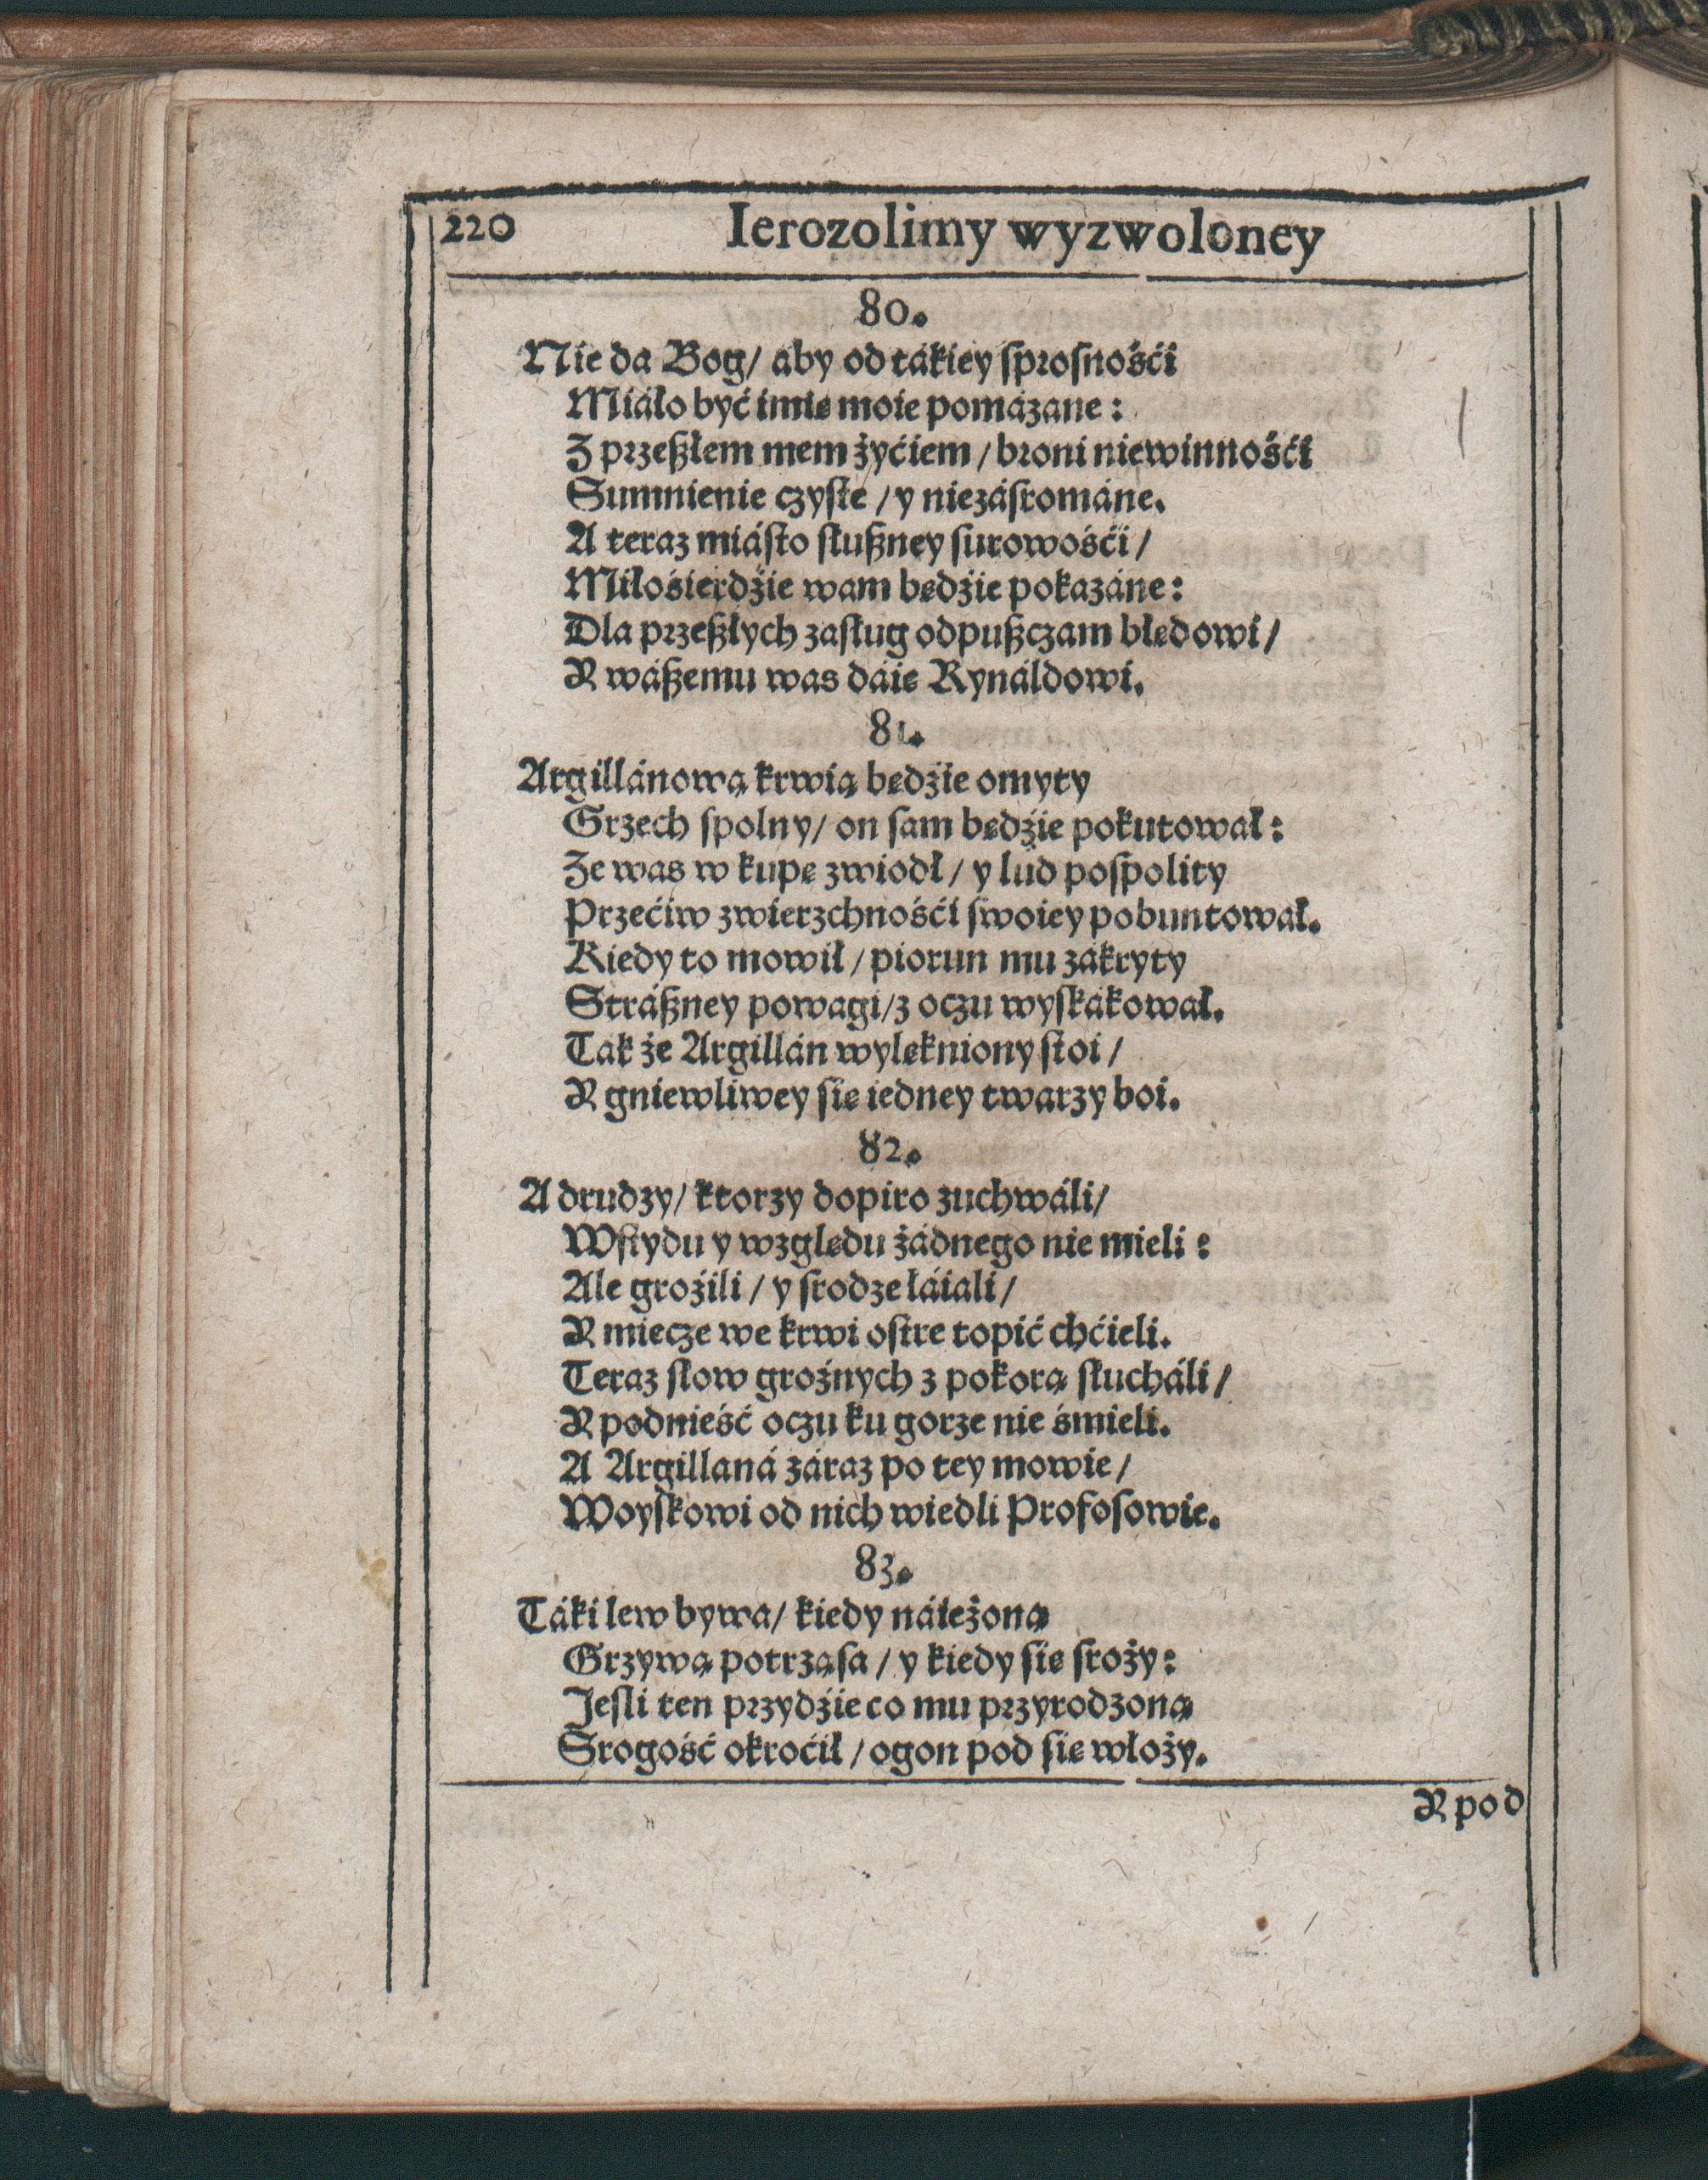 220 Ierozolimy wyzwoloney
80.
Nie da Bog/ áby od tákiey sprosnośći
Miáło być imię moie pomázane:
Z przeszłem mem żyćiem / broni niewinnośći
Sumnienie czyste / y niezásrománe.
A teraz miásto słuszney surowośći /
Miłośierdźie wam będźie pokazáne:
Dla przeszłych zasług odpuszczam błędowi /
Y wászemu was dáię Rynáldowi.
81.
Argillánową krwią będźie omyty
Grzech spolny/ on sam będźie pokutował:
Że was w kupę zwiodł / y lud pospolity
Przećiw zwierzchnośći swoiey pobuntował.
Kiedy to mowił / piorun mu zákryty
Strászney powagi/z oczu wyskákował.
Tak że Argillán wylękniony stoi /
Y gniewliwey się iedney twarzy boi.
82.
A drudzy/ ktorzy dopiro zuchwáli/
Wstydu y względu żádnego nie mieli:
Ale groźili / y srodze łáiali /
Y miecze we krwi ostre topić chćieli.
Teraz słow groźnych z pokorą słucháli /
Y podnieść oczu ku gorze nie śmieli.
A Argillaná záraz po tey mowie /
Woyskowi od nich wiedli Profosowie.
83.
Táki lew bywa/ kiedy náieżoną
Grzywą potrząsa / y kiedy się sroży:
Jesli ten przydźie co mu przyrodzoną
Srogość okroćił / ogon pod się włoży.
Y pod